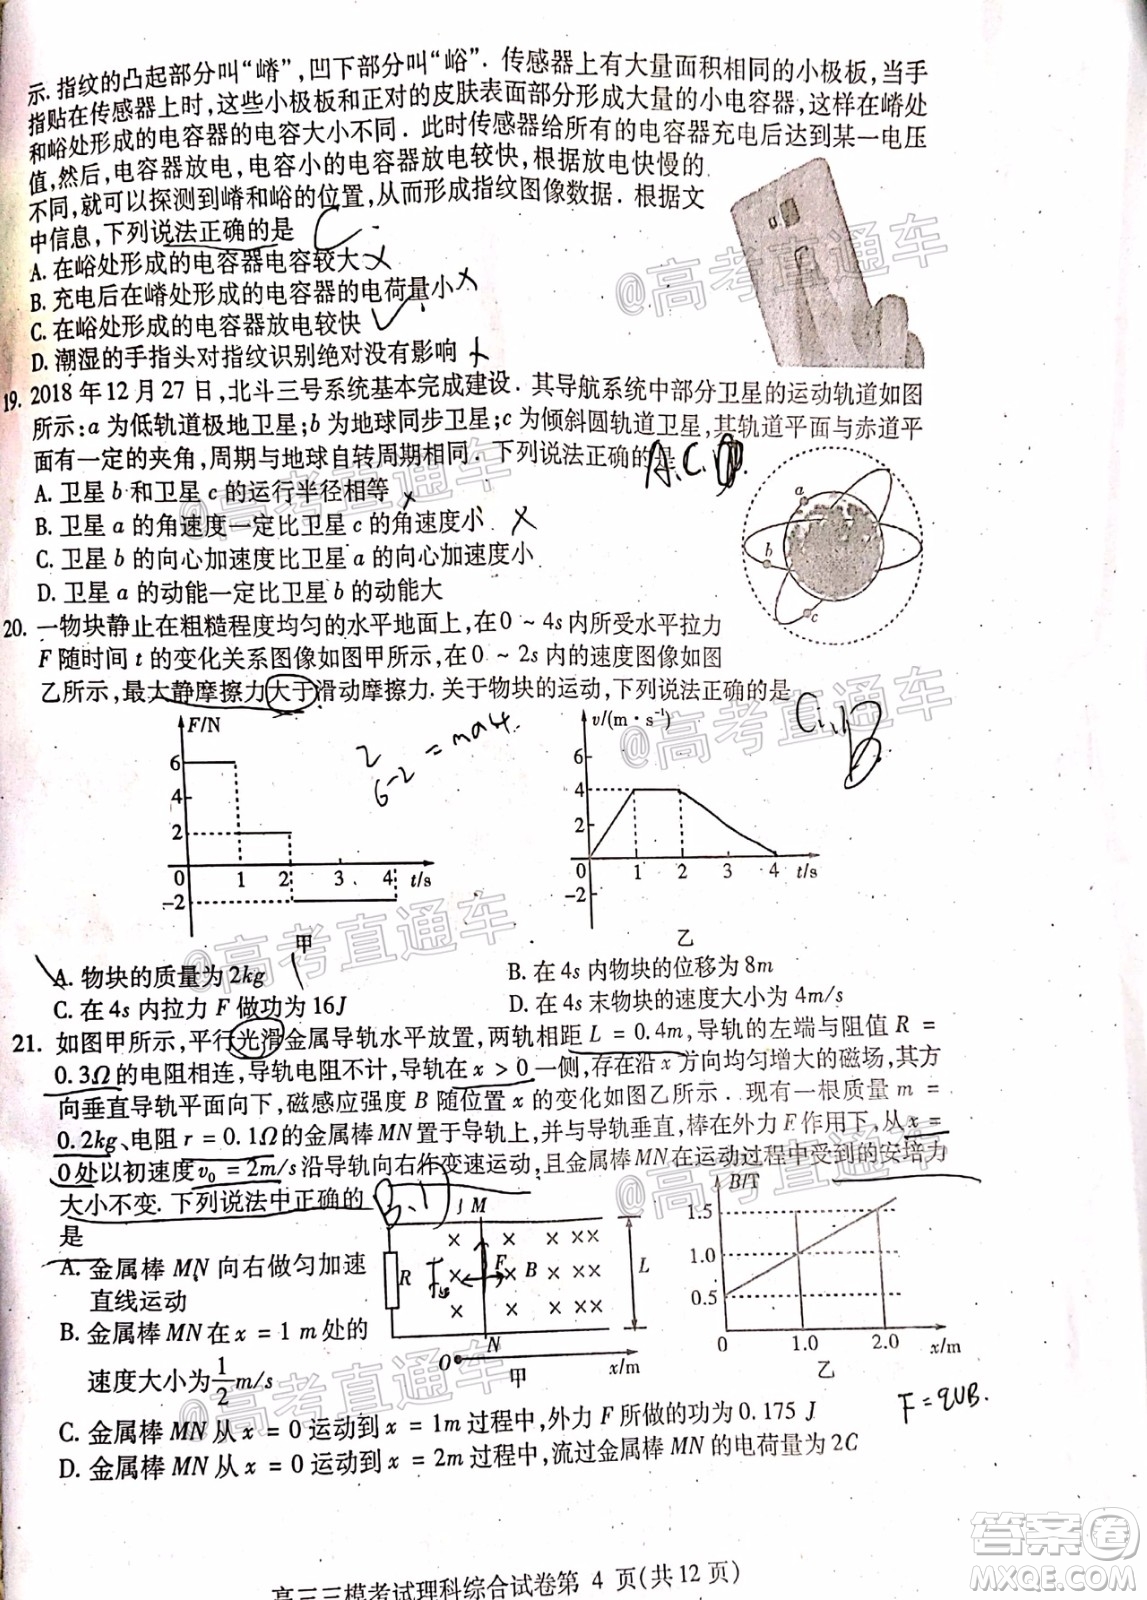 示. 指纹的凸起部分叫“嵴”, 凹下部分叫“峪”. 传感器上有大量面积相同的小极板, 当手
指贴在传感器上时, 这些小极板和正对的皮肤表面部分形成大量的小电容器, 这样在嵴处
和峪处形成的电容器的电容大小不同. 此时传感器给所有的电容器充电后达到某一电压
值, 然后, 电容器放电, 电容小的电容器放电较快, 根据放电快慢的
不同, 就可以探测到嵴和峪的位置, 从而形成指纹图像数据. 根据文
中信息, 下列说法正确的是 C
A. 在峪处形成的电容器电容较大 ×
B. 充电后在嵴处形成的电容器的电荷量小 ×
C. 在峪处形成的电容器放电较快 ✓
D. 潮湿的手指头对指纹识别绝对没有影响 ×
@高考直通车
19. 2018 年 12 月 27 日, 北斗三号系统基本完成建设. 其导航系统中部分卫星的运动轨道如图
所示: a 为低轨道极地卫星; b 为地球同步卫星; c 为倾斜圆轨道卫星, 其轨道平面与赤道平
面有一定的夹角, 周期与地球自转周期相同. 下列说法正确的是 A.C.D
A. 卫星 b 和卫星 c 的运行半径相等 ×
B. 卫星 a 的角速度一定比卫星 c 的角速度小 ×
C. 卫星 b 的向心加速度比卫星 a 的向心加速度小
D. 卫星 a 的动能一定比卫星 b 的动能大
@高考直通车
a
b
c
20. 一物块静止在粗糙程度均匀的水平地面上, 在 0 ~ 4s 内所受水平拉力
F 随时间 t 的变化关系图像如图甲所示, 在 0 ~ 2s 内的速度图像如图
乙所示, 最大静摩擦力大于滑动摩擦力. 关于物块的运动, 下列说法正确的是
@高考直通车
F/N
6
4
2
0 1 2 3 4 t/s
-2
甲
2
6-2 = ma4.
v/(m · s⁻¹)
6
4
2
0 1 2 3 4 t/s
-2
乙
@高考直通车
A. 物块的质量为 2kg
B. 在 4s 内物块的位移为 8m
C. 在 4s 内拉力 F 做功为 16J
D. 在 4s 末物块的速度大小为 4m/s
21. 如图甲所示, 平行光滑金属导轨水平放置, 两轨相距 L = 0.4m, 导轨的左端与阻值 R =
0.3Ω 的电阻相连, 导轨电阻不计, 导轨在 x > 0 一侧, 存在沿 x 方向均匀增大的磁场, 其方
向垂直导轨平面向下, 磁感应强度 B 随位置 x 的变化如图乙所示. 现有一根质量 m =
0.2kg、电阻 r = 0.1Ω 的金属棒 MN 置于导轨上, 并与导轨垂直, 棒在外力 F 作用下, 从 x =
0 处以初速度 v₀ = 2m/s 沿导轨向右作变速运动, 且金属棒 MN 在运动过程中受到的安培力
大小不变. 下列说法中正确的
是
@高考直通车
A. 金属棒 MN 向右做匀加速
直线运动
B. 金属棒 MN 在 x = 1 m 处的
速度大小为 1/2 m/s
M
R F B L
N
O x/m
甲
B/T
1.5
1.0
0.5
0 1.0 2.0 x/m
乙
@高考直通车
C. 金属棒 MN 从 x = 0 运动到 x = 1m 过程中, 外力 F 所做的功为 0.175 J
D. 金属棒 MN 从 x = 0 运动到 x = 2m 过程中, 流过金属棒 MN 的电荷量为 2C
F = qvB.
高三三模考试理科综合试卷第 4 页(共12 页)
答案圈
MXQE.COM